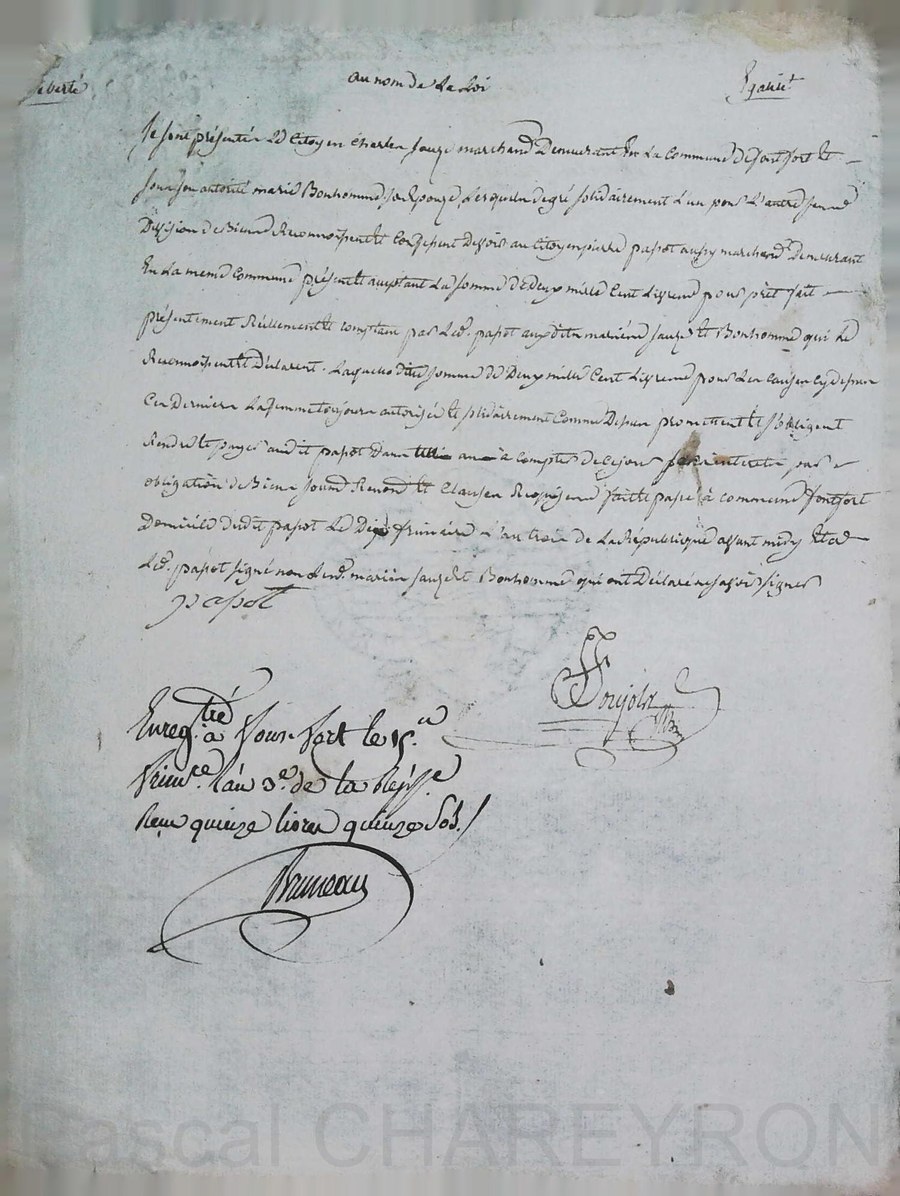 Liberté au nom de La Loi Egalité
Se sont présentés Le Citoyen Charles Sauze marchand Demeurant En La Commune de fontfort Et
sous son autorité marie Bonhomme sa Epouze, Lesquels de gré solidairement L'un pour L'autre sans
Division de Biens Reconnoissent Et Confessent Devoir au Citoyen pierre papot aussy marchand Demeurant
En La meme Commune présent Et aceptant La somme de Deux mille Cent Livres pour prêt fait
présentement Réellement Et comptant par Led. papot auxdits mariés Sauze Et Bonhomme qui Le
Reconnoissent Et Déclarent. Laquelle ditte somme de Deux mille Cent Livres pour Les Causes Cy dessus
Ces Derniers La femme toujours autorisée Et solidairement Comme Dessus promettent Et s'obligent
Rendre Et payer audit papot Dans un an a Compter de Ce jour sans interets par
obligation de Biens soumis Renond Et Clauses Requises fait Et passé à Commune fontfort
Domicile dudit papot Le Dix frimaire L'an trois de La République avant midy Et a
Led. papot signé non Lesd. mariés Sauze Et Bonhomme qui ont Déclaré ne savoir signer
papot
Soujols
Enregtré à Vours Fort le 15.
frimre. l'an 3e. de la Répe.
Reçu quinze livres quinze Sols.
Bruneau
Pascal CHAREYRON